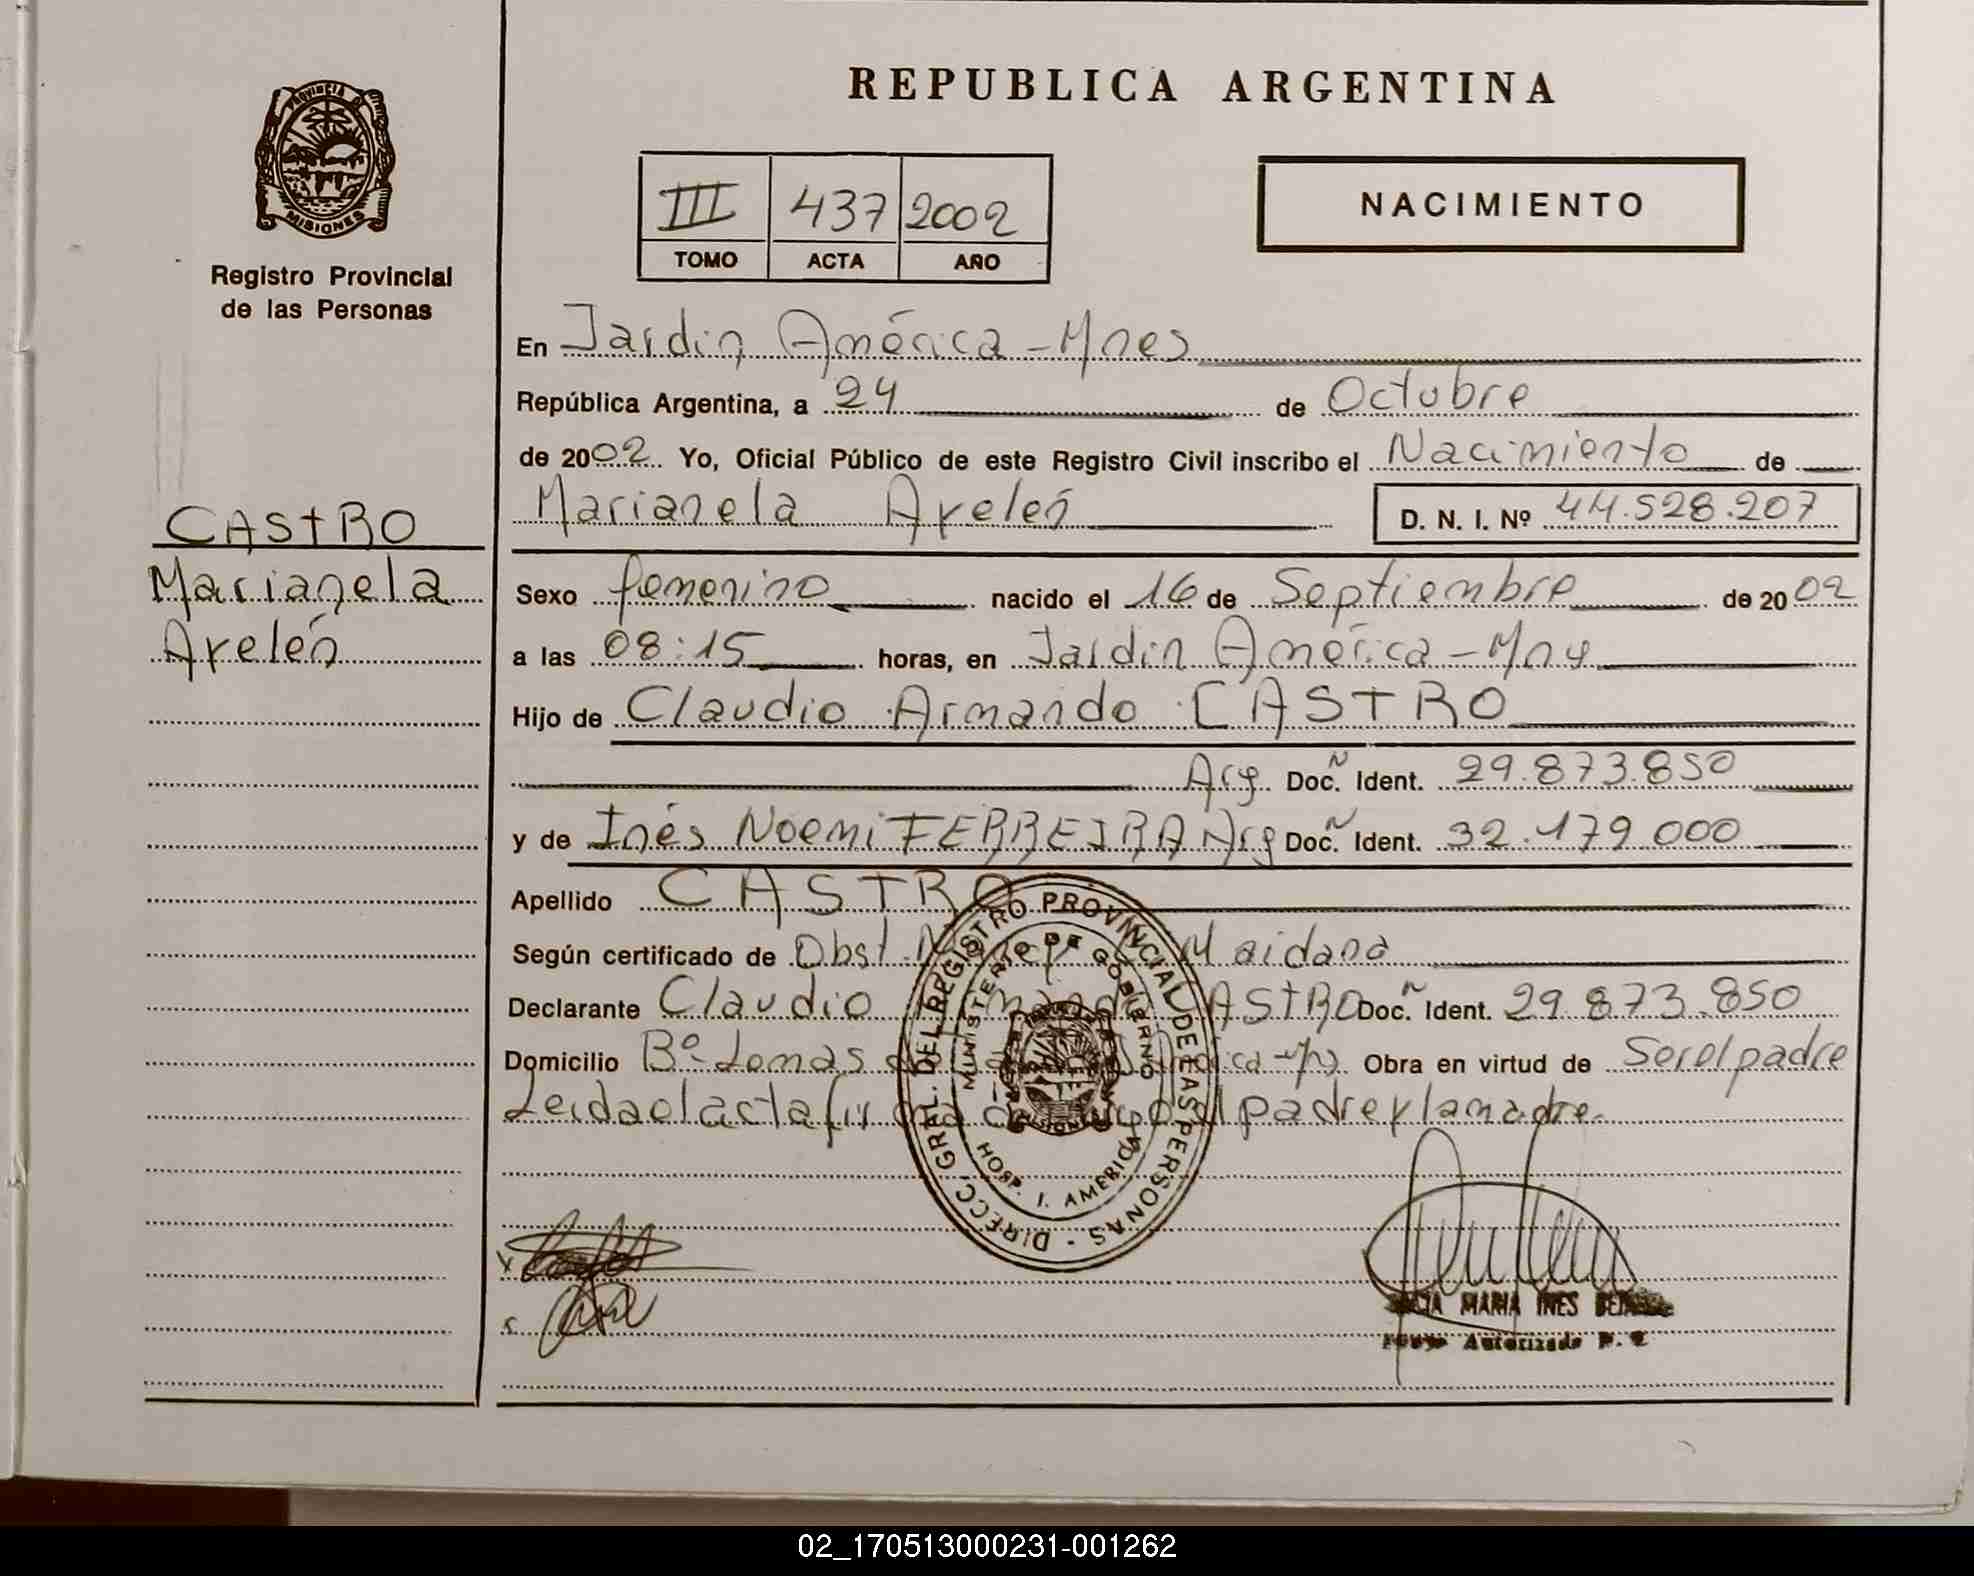 PROVINCIA DE
MISIONES
Registro Provincial
de las Personas
REPUBLICA ARGENTINA
III 437 2002
TOMO ACTA AÑO
NACIMIENTO
En Jardin América - Mnes
República Argentina, a 24 de Octubre
de 2002. Yo, Oficial Público de este Registro Civil inscribo el Nacimiento de
Marianela Ayelén D. N. I. Nº 44.528.207
CASTRO
Marianela
Ayelén
Sexo femenino nacido el 16 de Septiembre de 2002
a las 08:15 horas, en Jardin América - Mnes
Hijo de Claudio Armando CASTRO
Arg. Doc. N Ident. 29.873.850
y de Inés Noemi FERREIRA Arg Doc. N Ident. 32.179.000
Apellido CASTRO
Según certificado de Obst. Maidana
Declarante Claudio Armando CASTRO Doc. N Ident. 29.873.850
Domicilio Bº Lomas Obra en virtud de Ser el padre
Leida el acta padre y la madre.
DIRECC. GRAL. DEL REGISTRO PROVINCIAL DE LAS PERSONAS
MINISTERIO DE GOBIERNO
HOSP. J. AMERICA
MARIA INES
Autorizado
02_170513000231-001262